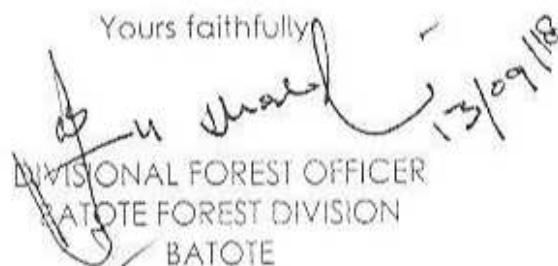 Yours faithfully
13/09/18
DIVISIONAL FOREST OFFICER
BATOTE FOREST DIVISION
BATOTE